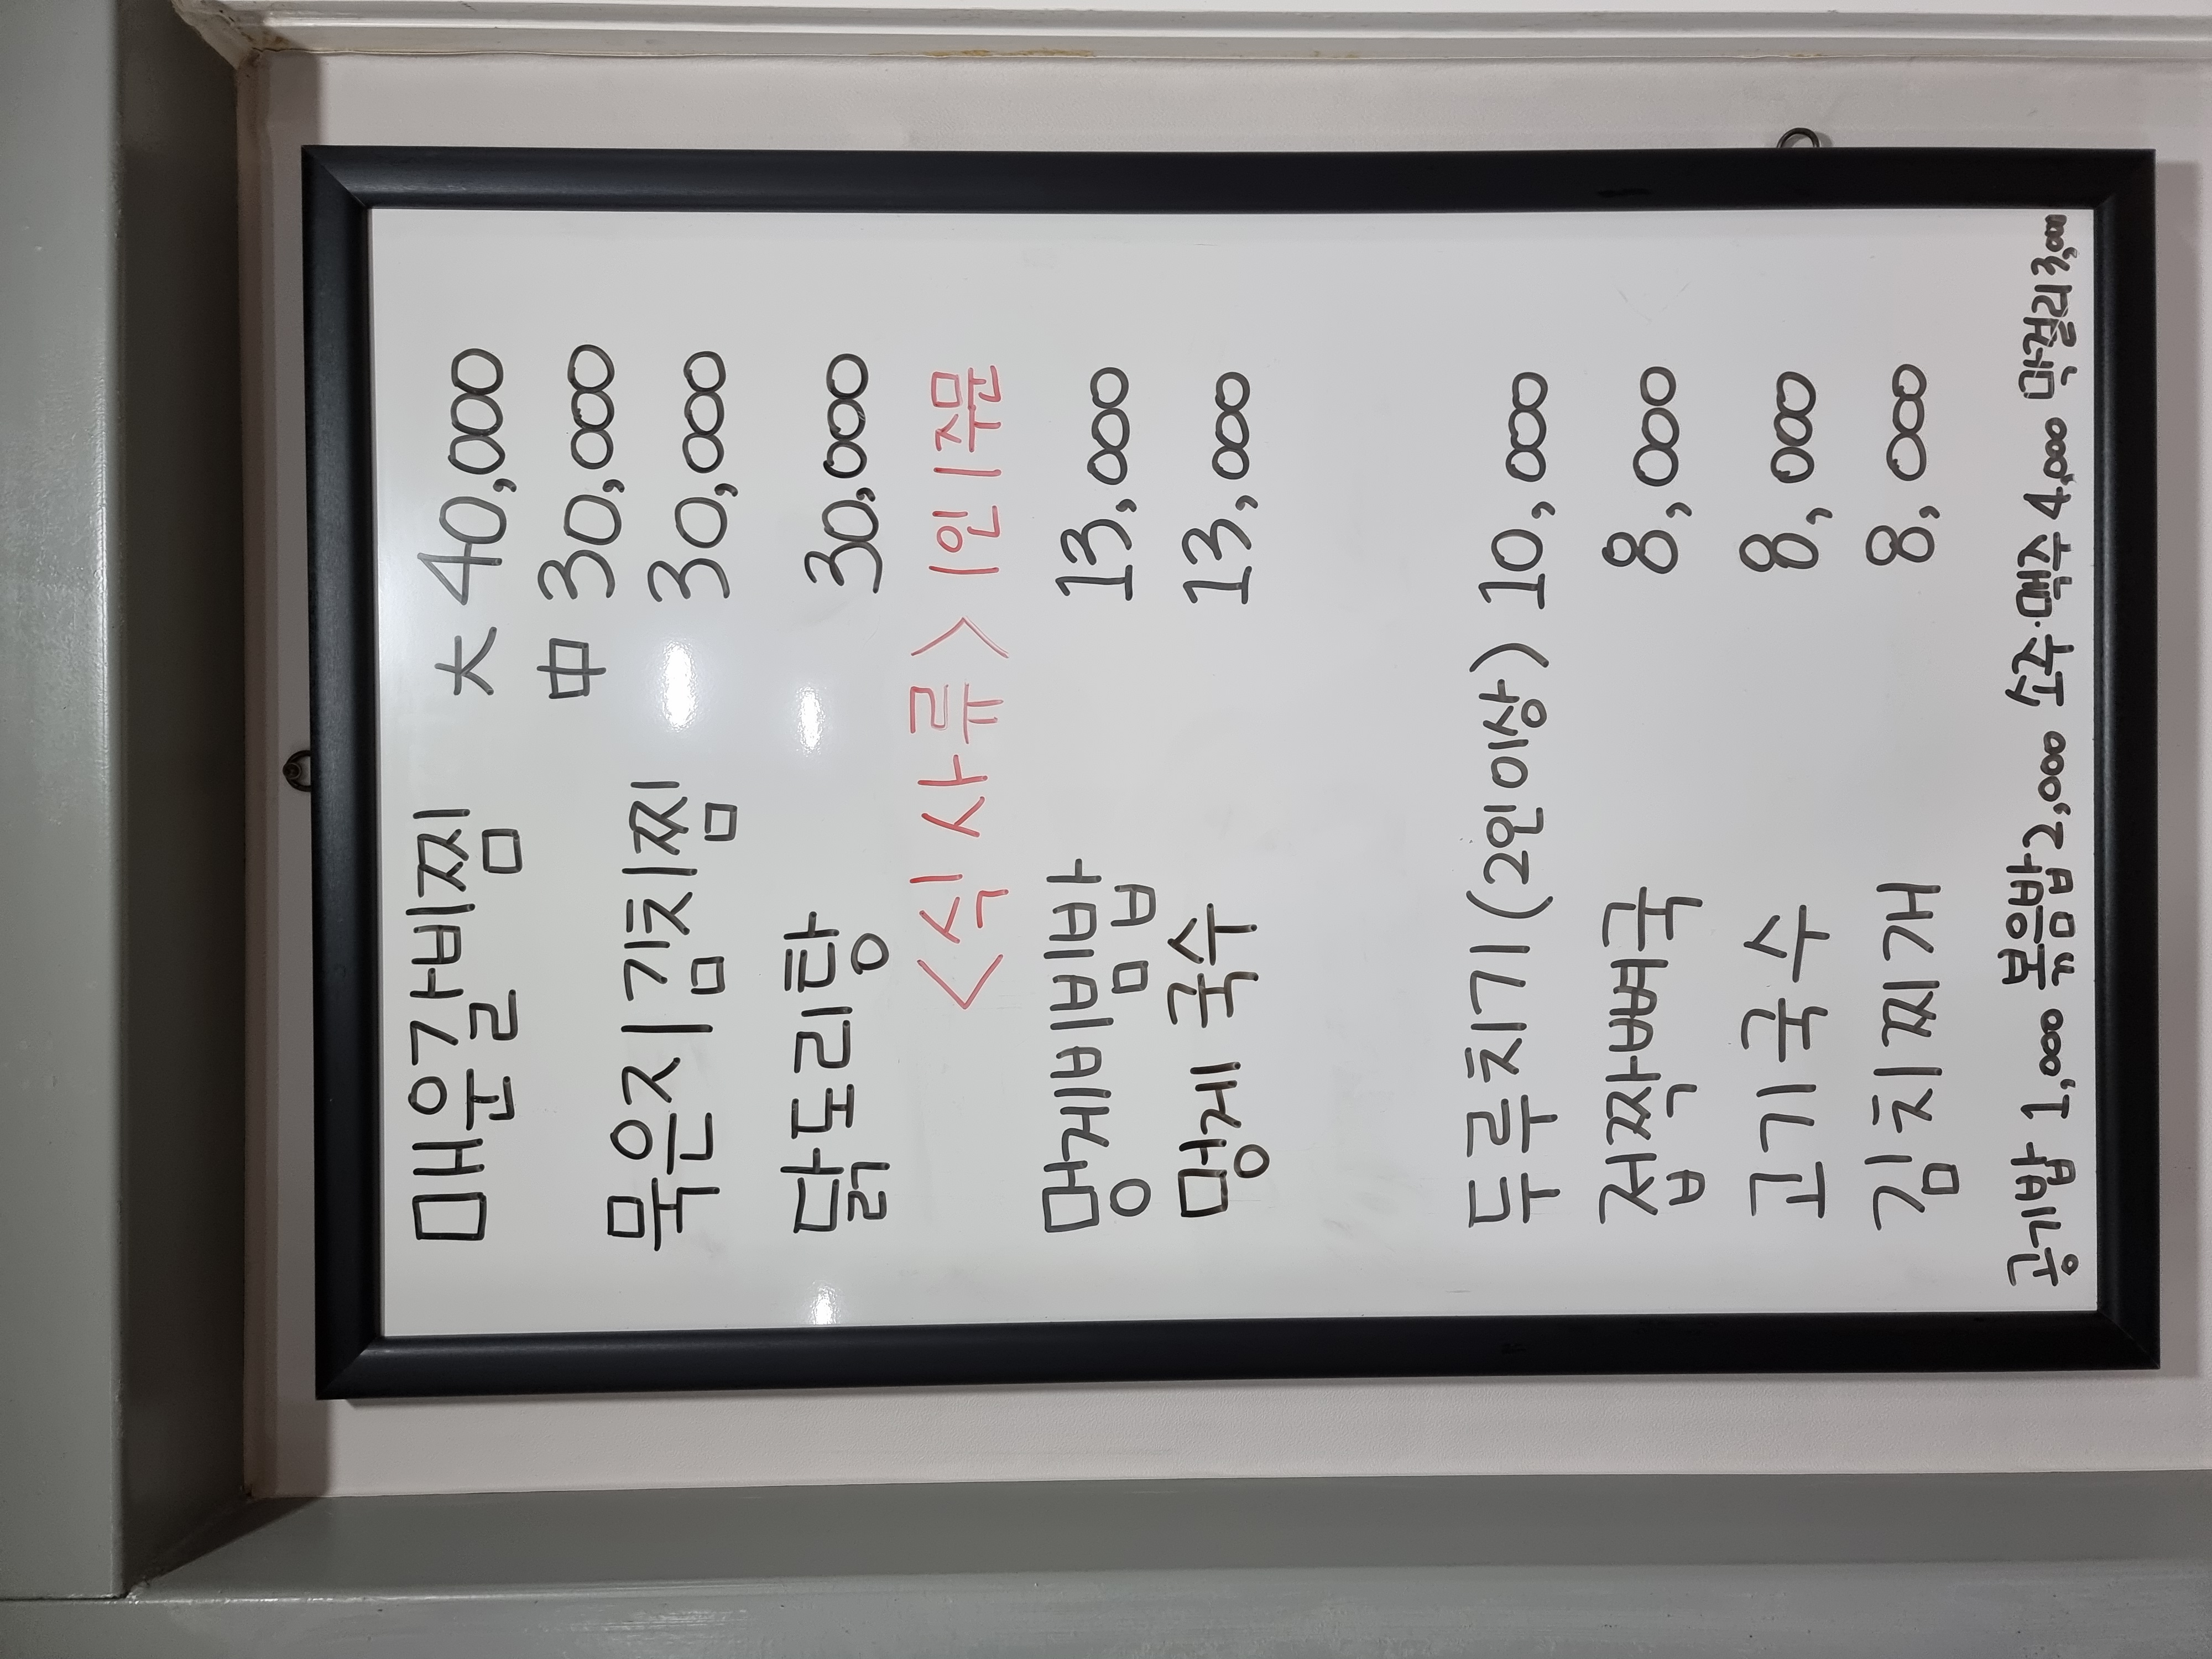 매운갈비찜 大 40,000
中 30,000
묵은지김치찜 30,000
닭도리탕 30,000
<식사류> 1인1주문
멍게비빔밥 13,000
멍게 국수 13,000
두루치기(2인이상) 10,000
접짝뼈국 8,000
고기국수 8,000
김치찌개 8,000
공기밥 1,000 볶음밥 2,000 소주·맥주 4,000 막걸리 3,000